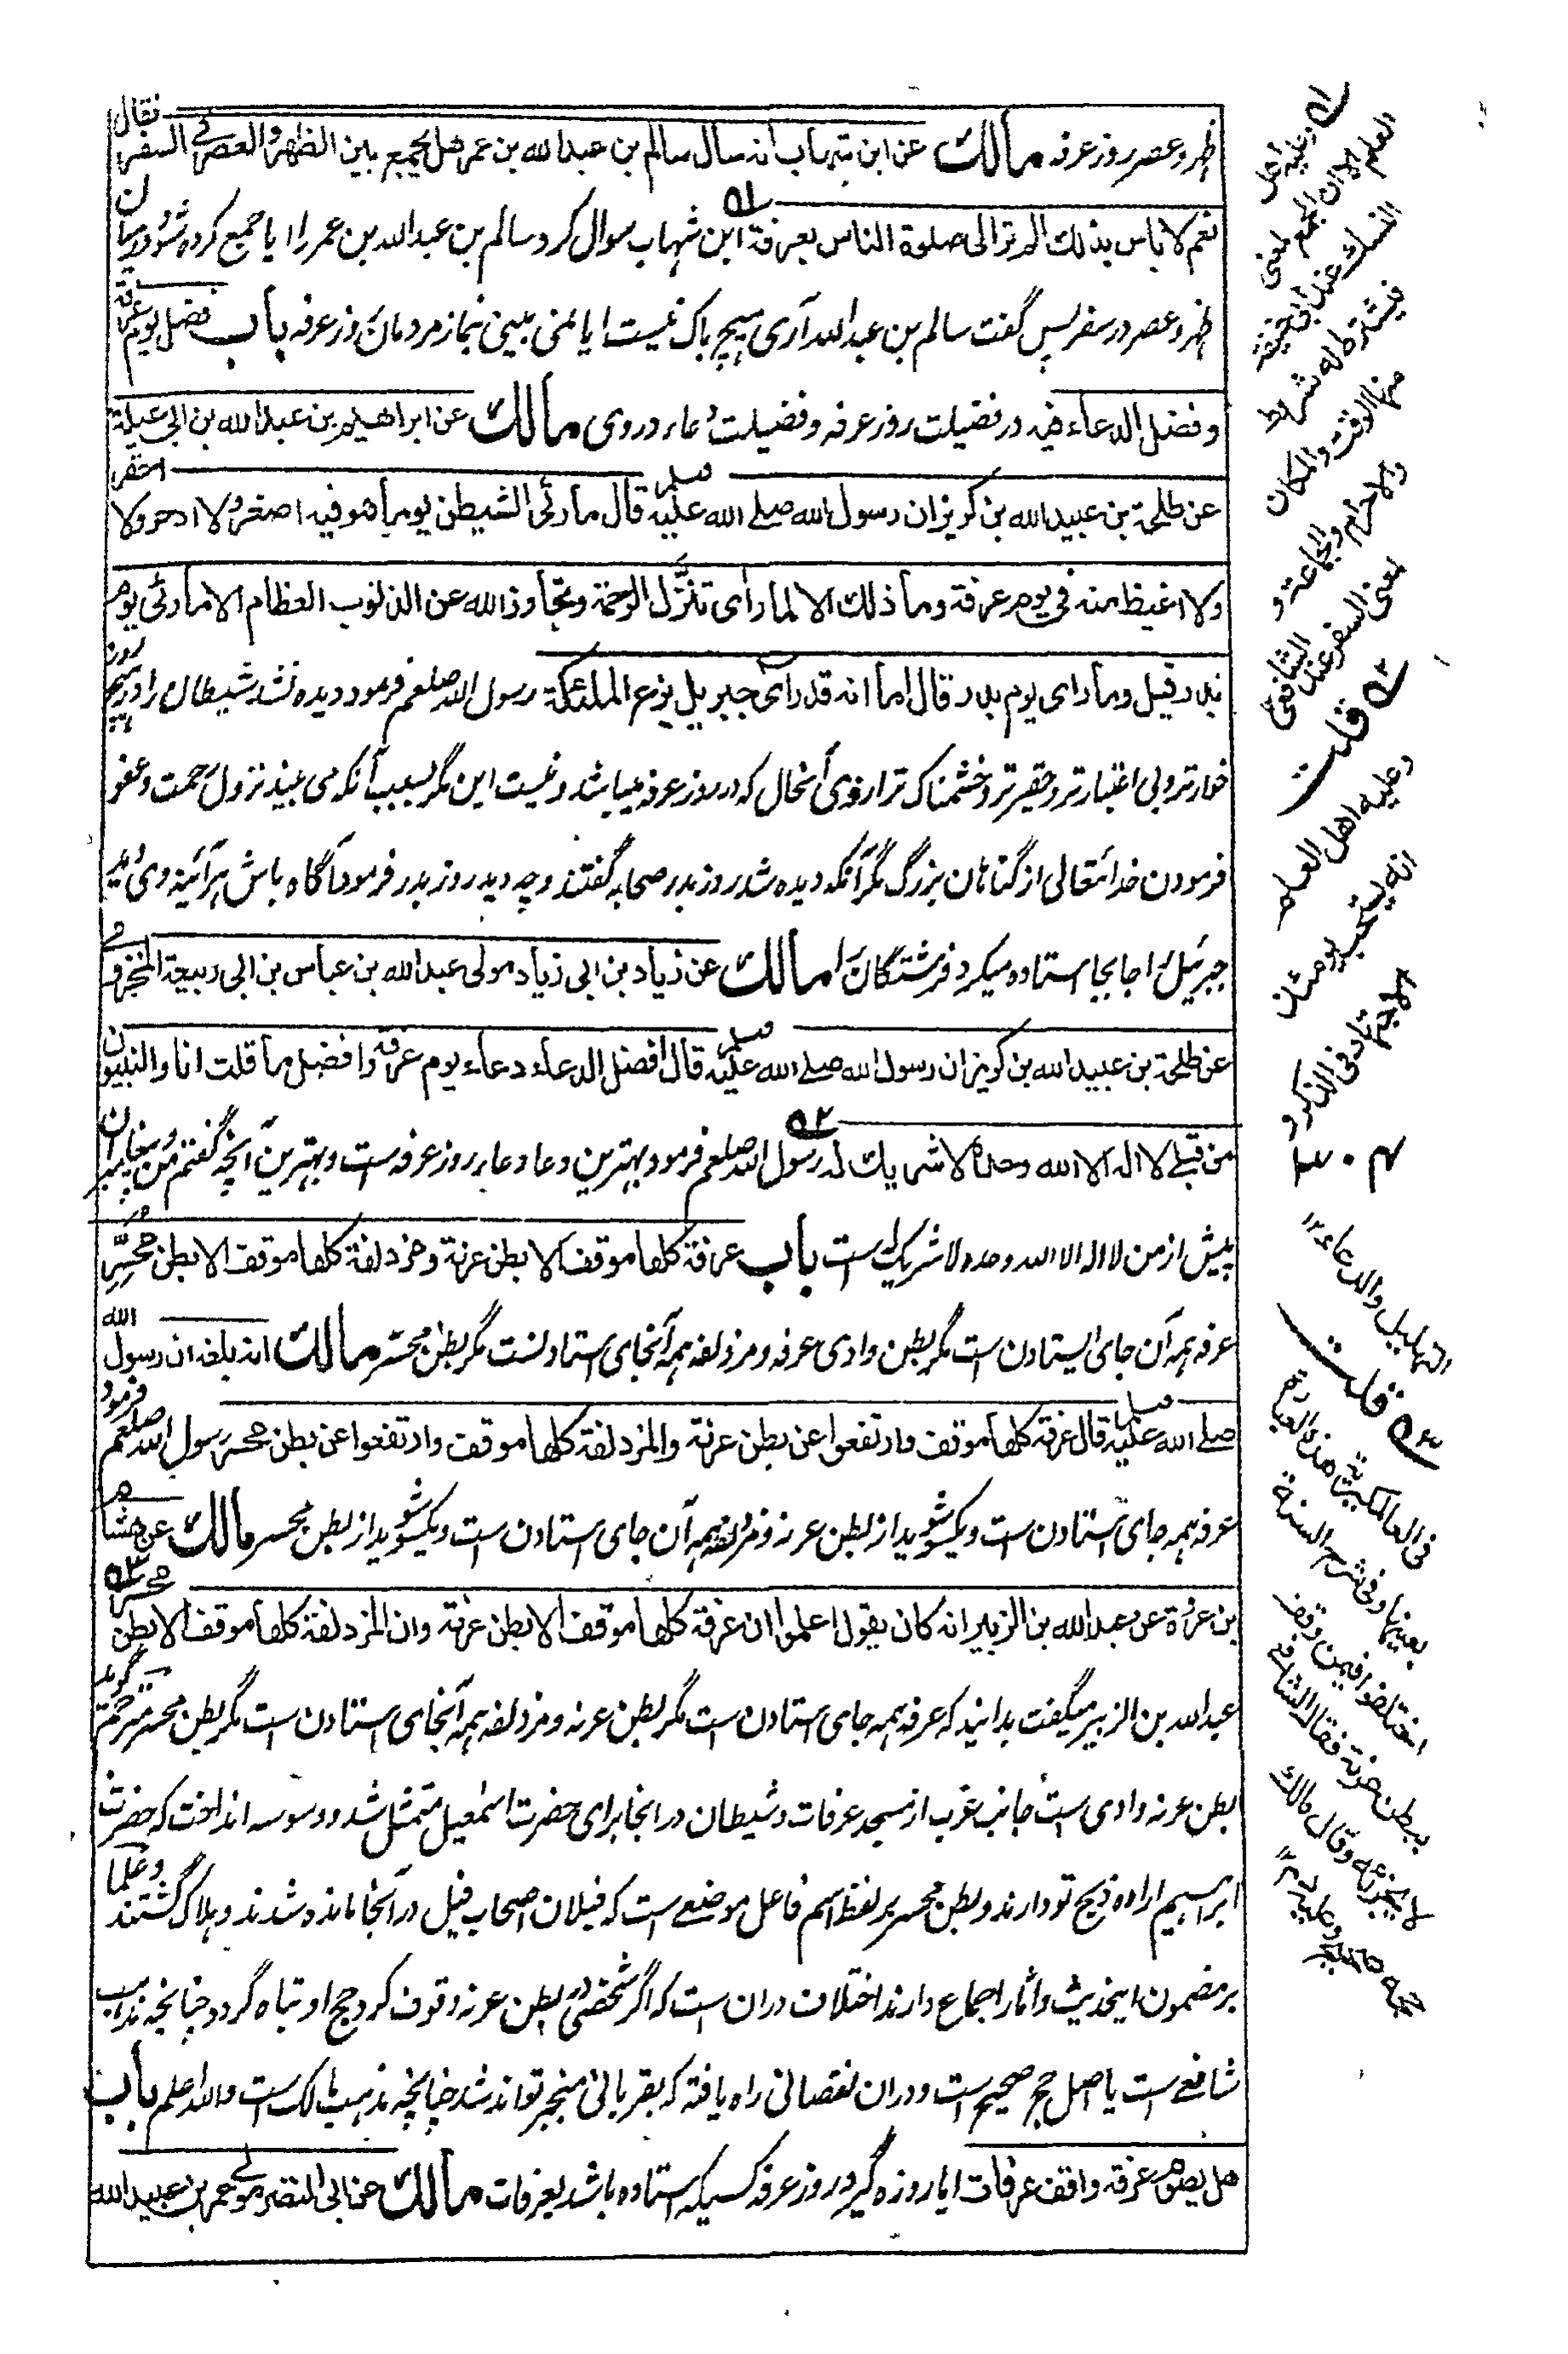 ظهر وعصر روز عرفه مالك عن ابن شهاب انه سال سالم بن عبد الله بن عمر هل يجمع بين الظهر والعصر في السفر فقال
نعم لا باس بذلك الم تر الى صلوة الناس بعرفة ابن شهاب سوال کرد سالم بن عبد الله بن عمر را ایا جمع کرده شود میان
ظهر وعصر در سفر پس گفت سالم بن عبد الله آری هیچ باک نیست ایا نمی بینی نماز مردمان روز عرفه باب فضل يوم عرفة
وفضل الدعاء فيه در فضیلت روز عرفه و فضیلت دعاء در وی مالك عن ابراهيم بن عبد الله بن ابي عبلة
عن طلحة بن عبيد الله بن كريز ان رسول الله صلى الله عليه وسلم قال ما رئي الشيطن يوما هو فيه اصغر ولا ادحر ولا احقر
ولا اغيظ منه في يوم عرفة وما ذلك الا لما راى تنزّل الرحمة وتجاوز الله عن الذنوب العظام الا ما رئي يوم
بدر قيل وما راى يوم بدر قال اما انه قد راى جبريل يزع الملئكة رسول الله صلعم فرمود دیده نشد شیطان را در هیچ روز
خوارتر و بی اعتبارتر و حقیرتر و خشمناک تر از وی آنحال که در روز عرفه میباشد و نیست این مگر بسبب آنکه می بیند نزول رحمت و عفو
فرمودن خدا تعالی از گناهان بزرگ مگر آنکه دیده شد روز بدر صحابه گفتند و چه دید روز بدر فرمود آگاه باش هرآئینه وی دید
جبرئیل را جابجا استاده میکرد فرشتگان را مالك عن زياد بن ابي زياد مولى عبد الله بن عباس بن ابي ربيعة المخزومي
عن طلحة بن عبيد الله بن كريز ان رسول الله صلى الله عليه وسلم قال افضل الدعاء دعاء يوم عرفة وافضل ما قلت انا والنبيون
من قبلي لا اله الا الله وحده لا شريك له رسول الله صلعم فرمود بهترین دعا دعاء روز عرفه ست و بهترین آنچه گفتم من و پیغامبران
پیش از من لا اله الا الله وحده لا شریک له است باب عرفة كلها موقف الا بطن عرنة ومزدلفة كلها موقف الا بطن محسّر
عرفه همه آن جای ایستادن است مگر بطن وادی عرنه و مزدلفه همه آنجای استادنست مگر بطن محسّر مالك انه بلغه ان رسول الله
صلى الله عليه وسلم قال عرفة كلها موقف وارتفعوا عن بطن عرنة والمزدلفة كلها موقف وارتفعوا عن بطن محسر رسول الله صلعم فرمود
عرفه همه جای استادن ست و یکسو شوید از بطن عرنه و مزدلفه همه آن جای استادن ست و یکسو شوید از بطن محسر مالك عن هشام
بن عروة عن عبد الله بن الزبير انه كان يقول اعلموا ان عرفة كلها موقف الا بطن عرنة وان المزدلفة كلها موقف الا بطن محسر
عبد الله بن الزبیر میگفت بدانید که عرفه همه جای استادن ست مگر بطن عرنه و مزدلفه همه آنجای استادن ست مگر بطن محسر مترجم گوید
بطن عرنه وادی ست جانب غرب از مسجد عرفات و شیطان در آنجا برای حضرت اسمٰعیل متمثل شد و وسوسه انداخت که حضرت
ابراهیم اراده ذبح تو دارند و بطن محسر بر لفظ اسم فاعل موضعی است که فیلان اصحاب فیل در آنجا مانده شدند و هلاک گشتند و علما
بر مضمون اینحدیث و آثار اجماع دارند اختلاف دران است که اگر شخصی در بطن عرنه وقوف کرد حج او تباه گردد چنانچه مذهب
شافعی ست یا اصل حج صحیح است و دران نقصانی راه یافته که بقربانی منجبر تواند شد چنانچه مذهب مالک ست والله اعلم باب
هل يصوم عرفة واقف عرفات ایا روزه گیرد روز عرفه کسیکه استاده باشد بعرفات مالك عن ابي النضر مولى عمر بن عبيد الله
۵۱ وعليه اهل
العلم الا ان الجمع لمعنى
النسك عند ابي حنيفة
فيشترط له شروط
منها الوقت والمكان
والاحرام والجماعة و
لمعنى السفر عند الشافعي
۵۲ قلت
وعليه اهل العلم
انه يستحب يومئذ
الاجتهاد في الذكر و
التهليل والدعاء ۱۲
۵۳ قلت
في العالمگيرية هذه العبارة
بعينها وفي شرح السنة
اختلفوا فيمن وقف
ببطن عرنة فقال الشافعي
لا يجزئه وقال مالك
حجه صحيح وعليه دم ۱۲